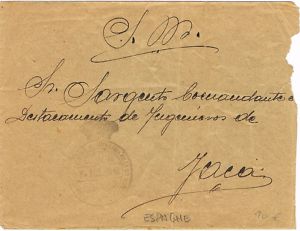 S. M.
Sr. Sargento Comandante
Destacamento de Ingenieros de
Jaca
ESPAGNE